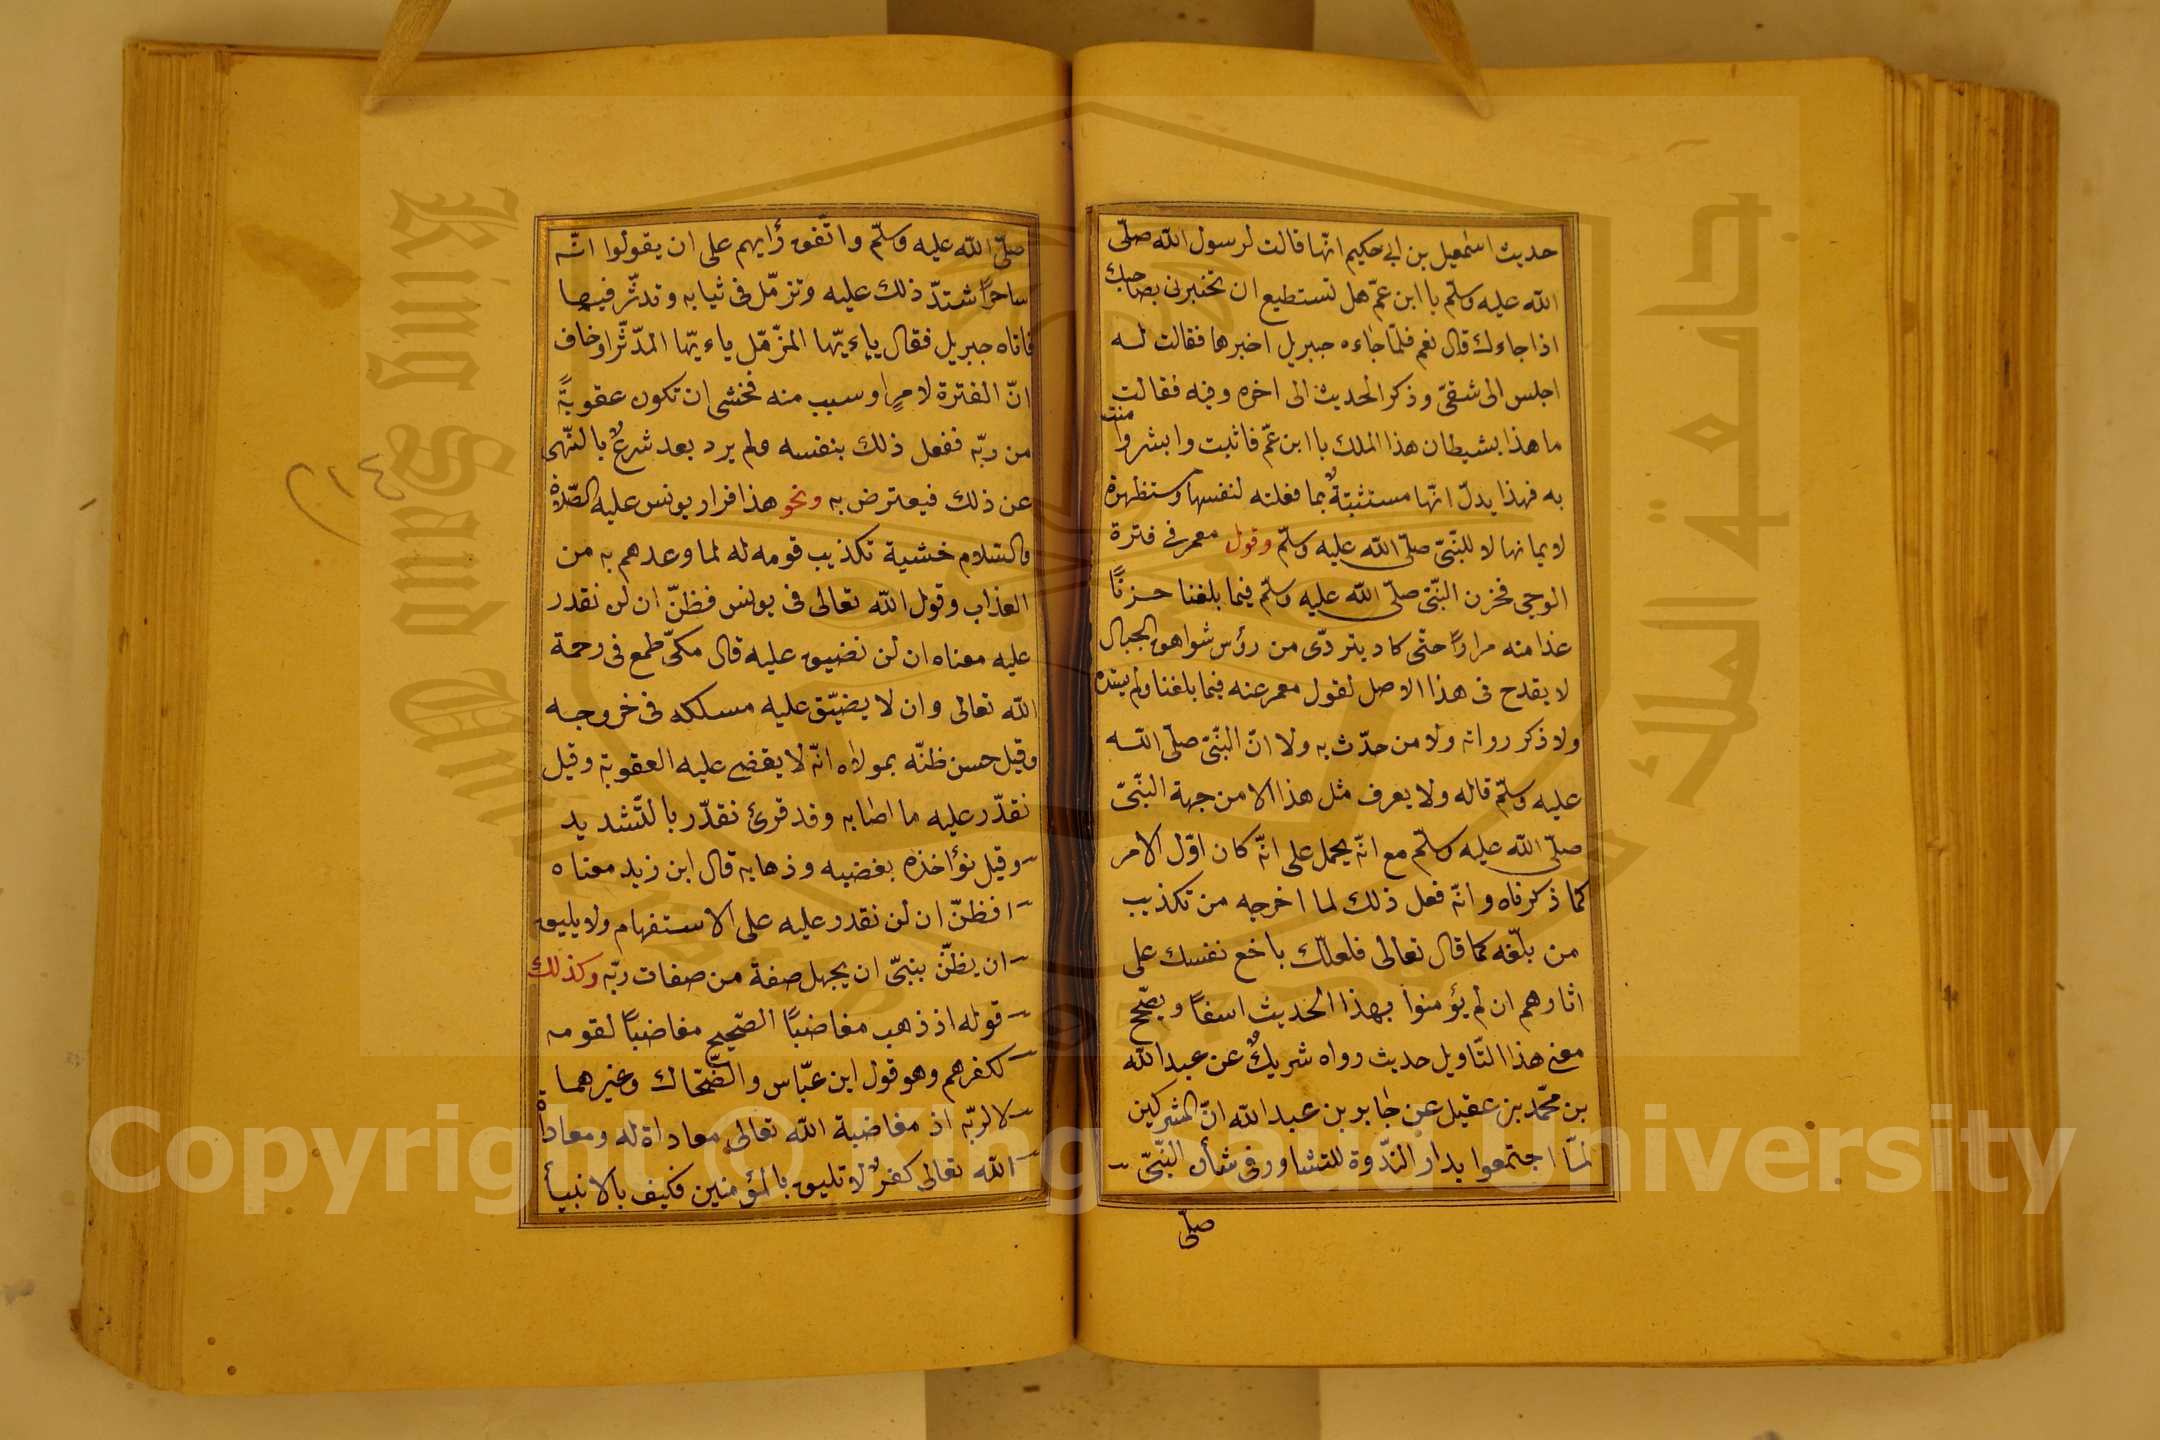 حديث اسمعيل بن ابي حكيم انّها قالت لرسول الله صلّى
الله عليه وسلّم يا ابن عمّ هل تستطيع ان تخبرنى بصاحبك
اذا جاءك قال نعم فلمّا جاءه جبريل اخبرها فقالت له
اجلس الى شقىّ وذكر الحديث الى اخره وفيه فقالت
ما هذا بشيطان هذا الملك يا ابن عمّ فاثبت وابشر وامنت
به فهذا يدلّ انّها مستثبتةٌ بما فعلته لنفسها ومستظهرة
لايمانها لا للنّبىّ صلّى الله عليه وسلّم وقول معمر فى فترة
الوحى فحزن النّبىّ صلّى الله عليه وسلّم فيما بلغنا حزنًا
غدا منه مرارًا حتّى كاد يتردّى من رؤس شواهق الجبال
لا يقدح فى هذا الاصل لقول معمر عنه فيما بلغنا ولم يسنده
ولا ذكر رواته ولا من حدّث به ولا انّ النّبىّ صلّى الله
عليه وسلّم قاله ولا يعرف مثل هذا الا من جهة النّبىّ
صلّى الله عليه وسلّم مع انّه يحمل على انّه كان اوّل الامر
كما ذكرناه وانّه فعل ذلك لما اخرجه من تكذيب
من بلّغه كما قال تعالى فلعلّك باخع نفسك على
اثارهم ان لم يؤمنوا بهذا الحديث اسفًا ويصّحح
معنى هذا التّاويل حديث رواه شريكٌ عن عبد الله
بن محمّد بن عقيل عن جابر بن عبد الله انّ المشركين
لمّا اجتمعوا بدار النّدوة للتشاور فى شأن النّبىّ
صلّى
صلّى الله عليه وسلّم واتّفق رأيهم على ان يقولوا انّه
ساحرٌ اشتدّ ذلك عليه وتزمّل فى ثيابه وتدثّر فيها
فاتاه جبريل فقال ياءيّها المزّمّل ياءيّها المدّثّر او خاف
انّ الفترة لامرٍ او سبب منه فخشى ان تكون عقوبةً
من ربّه ففعل ذلك بنفسه ولم يرد بعد شرعٌ بالنّهى
عن ذلك فيعترض به ونحو هذا فرار يونس عليه الصّلاة
والسّلام خشية تكذيب قومه له لما وعدهم به من
العذاب وقول الله تعالى فى يونس فظنّ ان لن نقدر
عليه معناه ان لن نضيق عليه قال مكّىّ طمع فى رحمة
الله تعالى وان لا يضيّق عليه مسلكه فى خروجه
وقيل حسن ظنّه بمولاه انّه لا يقضى عليه العقوبة وقيل
نقدّر عليه ما اصابه وقد قرئ نقدّر بالتّشديد
وقيل نؤاخذه بغضبه وذهابه قال ابن زيد معناه
افظنّ ان لن نقدر عليه على الاستفهام ولا يليق
ان يظنّ بنبىّ ان يجهل صفة من صفات ربّه وكذلك
قوله اذ ذهب مغاضبًا الصّحيح مغاضبًا لقومه
لكفرهم وهو قول ابن عبّاس والضّحّاك وغيرهما
لا لربّه اذ مغاضبة الله تعالى معاداة له ومعاداة
الله تعالى كفرٌ لا تليق بالمؤمنين فكيف بالانبيأ
King Saud
جامعة الملك
Copyright © King Saud University